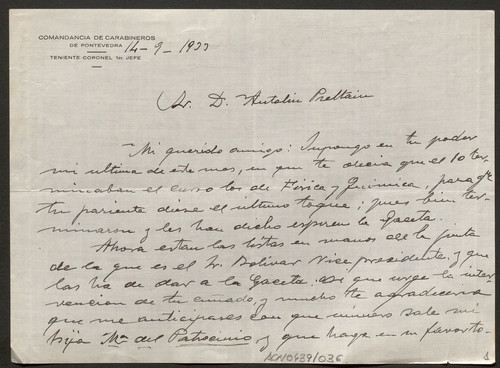 COMANDANCIA DE CARABINEROS
DE PONTEVEDRA
TENIENTE CORONEL 1er JEFE
14-9-1933
Sr. D. Antolin
Mi querido amigo: Supongo en tu poder
mi ultima de este mes, en que te decia que el 10 ter-
minaban el curso los de Fisica y Quimica, para qe
tu pariente diese el ultimo toque; pues bien ter-
minaron y les han dicho esperen la Gaceta.
Ahora estan las listas en manos de la Junta
de la que es el Sr. Bolivar Vice presidente, y que
las ha de dar a la Gaceta. Asi que urge la inter-
vencion de tu cuñado, y mucho te agradeceria
que me anticipares con que número sale mi
hija Mª del Patrocinio, y que haga en su favor to-
ACN0439/036